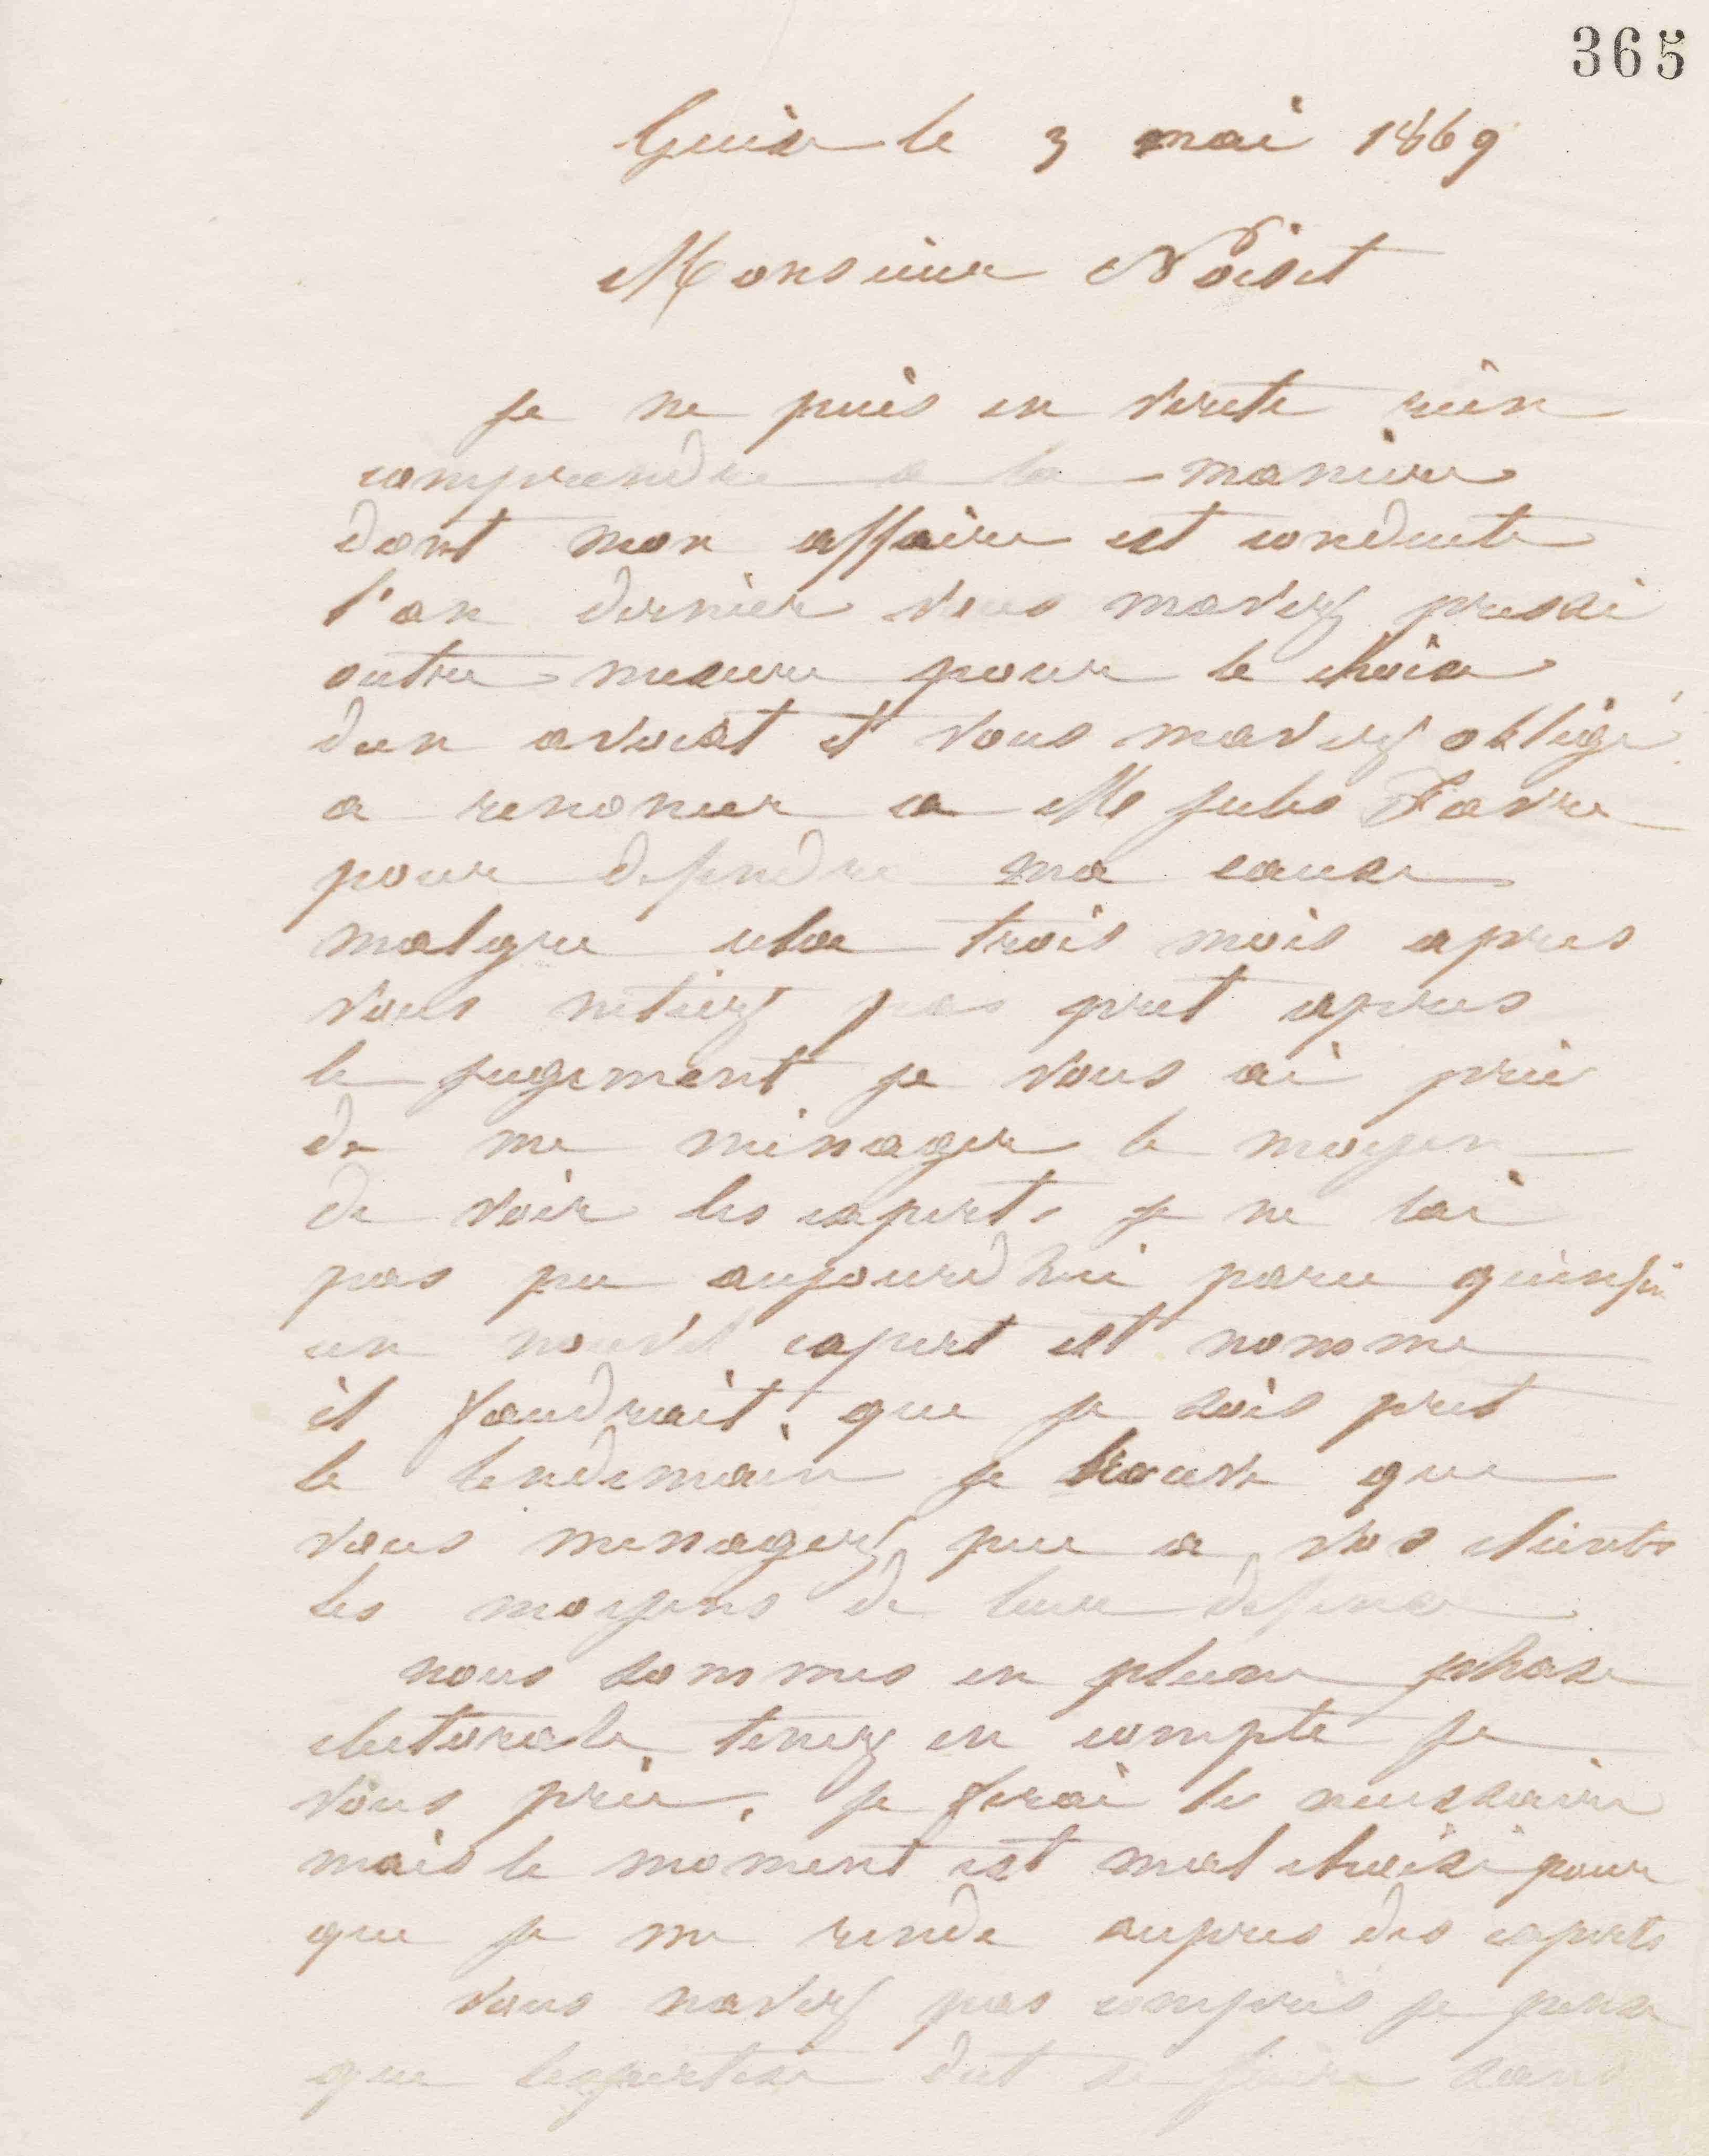 365
Guise le 3 mai 1869
Monsieur Noiset
je ne puis en verite rien
comprendre a la maniere
dont mon affaire est conduite
l'an dernier vous mavez pressé
outre mesure pour le choix
dun avocat et vous mavez obligé
a renoncer a Me Jules Favre
pour defendre ma cause
malgre cela trois mois apres
vous netiez pas pret apres
le jugement je vous ai prié
de me menager le moyen
de voir les experts je ne lai
pas pu aujourdhui parce quenfin
un nouvel expert est nomme
il faudrait que je sois pret
le lendemain je trouve que
vous menagez peu a vos clients
les moyens de leur defense
nous sommes en pleine phase
electorale tenez en compte je
vous prie. je ferai le necessaire
mais le moment est mal choisi pour
que je me rende aupres des experts
vous navez pas compris je pense
que lexpertise dut se faire sans